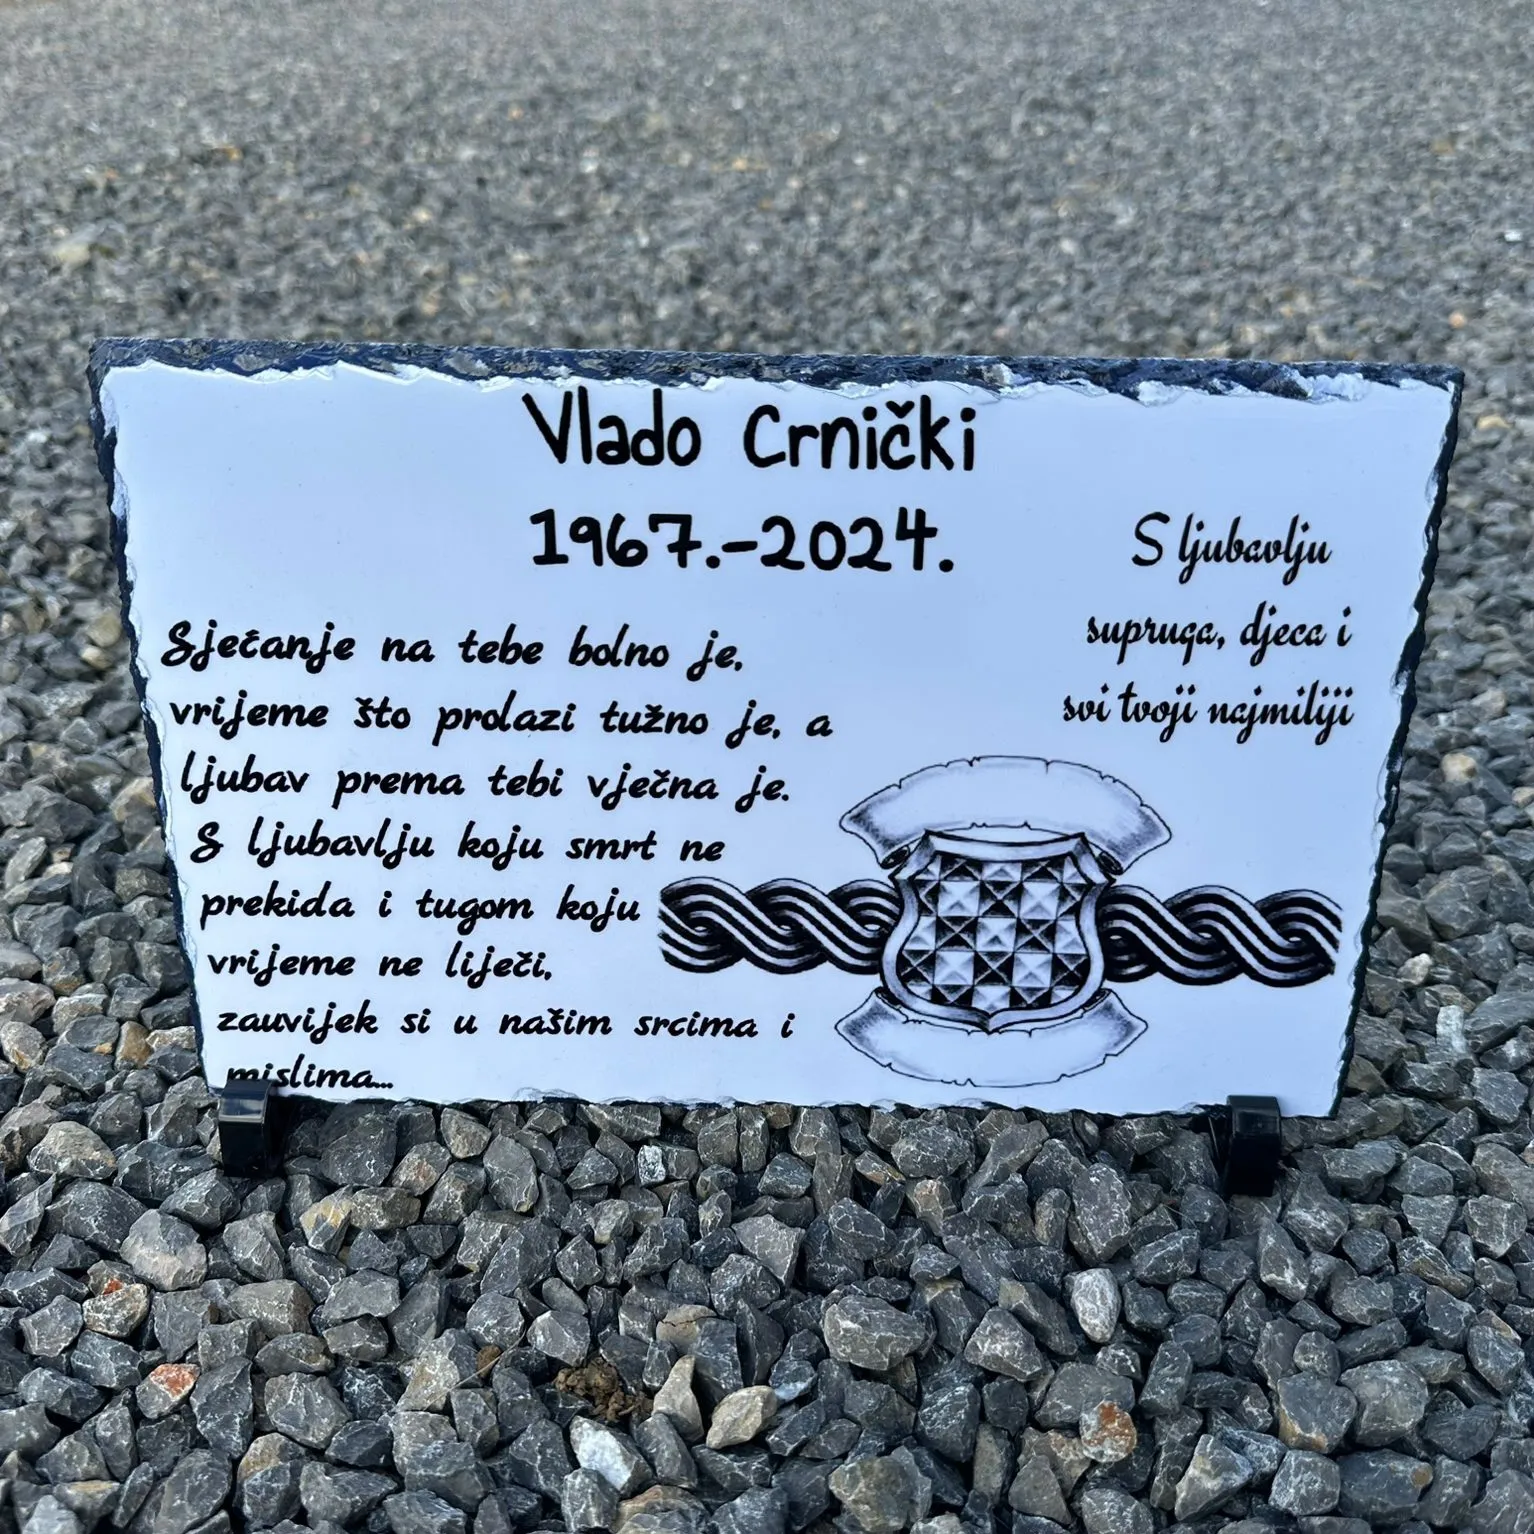 Vlado Crnički
1967.-2024.
S ljubavlju
supruga, djeca i
svi tvoji najmiliji
Sjećanje na tebe bolno je,
vrijeme što prolazi tužno je, a
ljubav prema tebi vječna je.
S ljubavlju koju smrt ne
prekida i tugom koju
vrijeme ne liječi,
zauvijek si u našim srcima i
mislima...